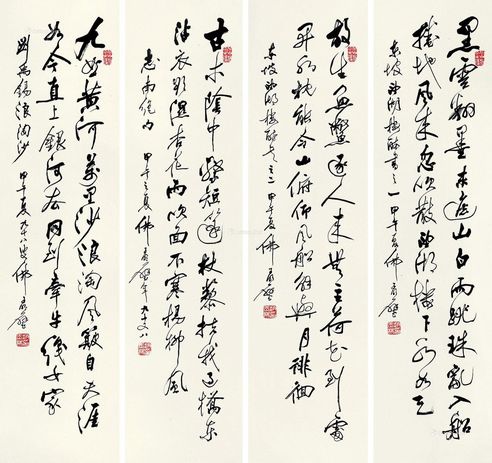 黑雲翻墨未遮山白雨跳珠亂入船
捲地風來忽吹散望湖樓下水如天
東坡望湖樓醉書之一 甲午夏佛
放生魚鱉逐人來無主荷花到處
開水枕能令山俯仰風船解與月徘徊
東坡望湖樓醉書之二 甲午夏佛
古木陰中繫短篷杖藜扶我過橋東
沾衣欲濕杏花雨吹面不寒楊柳風
志南絕句 甲午之夏佛 年九十又八
九曲黃河萬里沙浪淘風簸自天涯
如今直上銀河去同到牽牛織女家
劉禹錫浪淘沙 甲午夏九十八叟佛